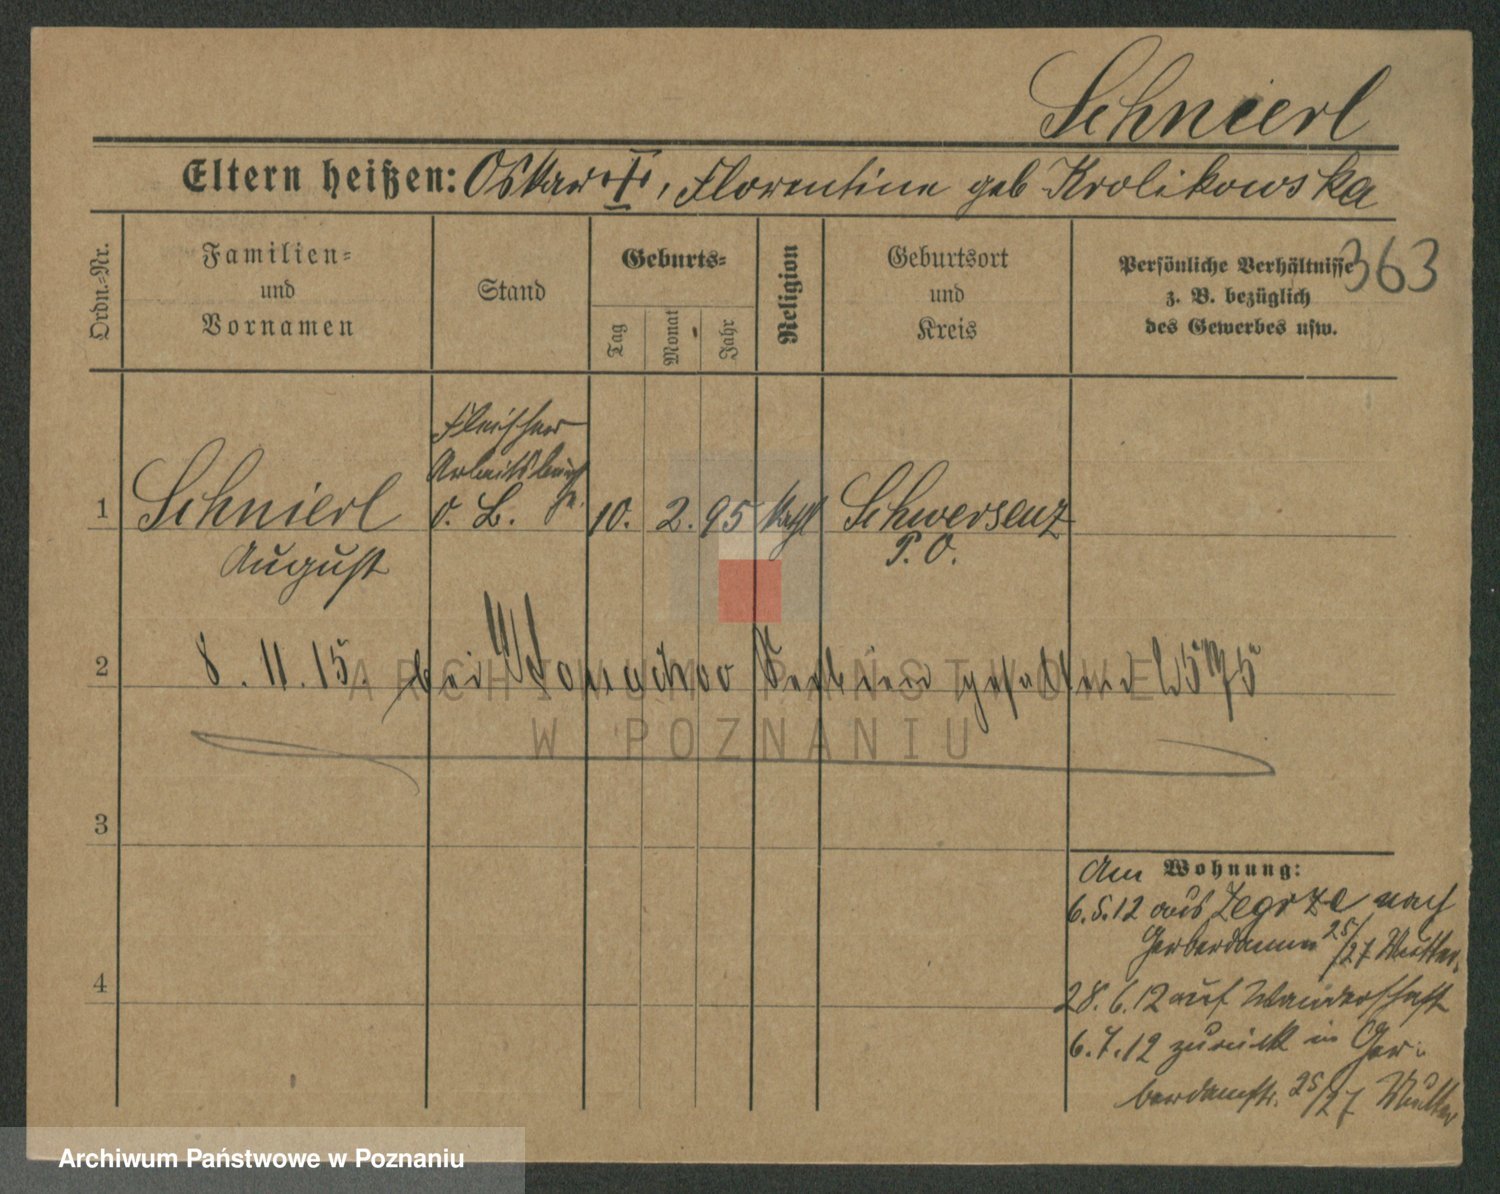 Schnierl
Eltern heißen: Oskar †, Florentine geb Krolikowska
Ordn.-Nr.
Familien-
und
Vornamen
Stand
Geburts-
Tag
Monat
Jahr
Religion
Geburtsort
und
Kreis
Persönliche Verhältnisse
z. B. bezüglich
des Gewerbes usw.
363
Fleischer
Arbeitsbursche
1 Schnierl o. B. 10. 2. 95 kath Schwersenz
August P. O.
2 8. 11. 15. bei Verdun gefallen
3
4
Am Wohnung:
6.5.12 aus Zegrze nach
Gerberdamm 25/27 Mutter.
28.6.12 auf Wanderschaft
6.7.12 zurück in Ger-
berdammstr. 25/27 Mutter
ARCHIWUM PAŃSTWOWE
W POZNANIU
Archiwum Państwowe w Poznaniu